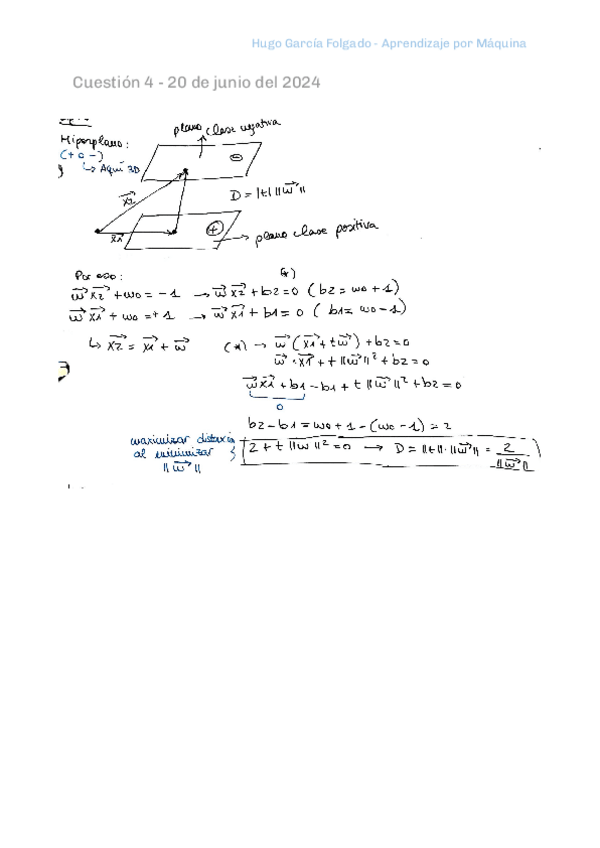 Hugo García Folgado - Aprendizaje por Máquina
Cuestión 4 - 20 de junio del 2024
plano clase negativa
Hiperplano:
(+ o -)
↳ Aquí 3D
⊖
D = |t| ||w⃗||
x⃗2
x⃗1
⊕
→ plano clase positiva
Por eso:
(*)
w⃗ x⃗2 + w0 = -1 → w⃗ x⃗2 + b2 = 0 (b2 = w0 + 1)
w⃗ x⃗1 + w0 = +1 → w⃗ x⃗1 + b1 = 0 (b1 = w0 - 1)
↳ x⃗2 = x⃗1 + w⃗ (*) → w⃗ (x⃗1 + t w⃗) + b2 = 0
w⃗ · x⃗1 + t ||w⃗||² + b2 = 0
w⃗ x⃗1 + b1 - b1 + t ||w⃗||² + b2 = 0
0
b2 - b1 = w0 + 1 - (w0 - 1) = 2
maximizar distancia
al minimizar
||w⃗||
2 + t ||w||² = 0 → D = ||t|| · ||w⃗|| = 2 / ||w⃗||